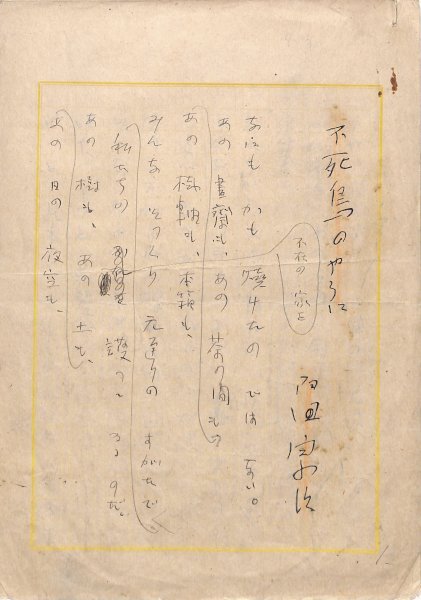 不死鳥のやうに
百田宗治
不在の家を
なにもかも焼けたのではない。
あの書齋も、あの茶の間も、
あの掛軸も、本箱も、
みんなそつくり元通りのすがたで、
私たちの 護つてゐるのだ。
あの樹も、あの土も、
あの日の夜空も、
1